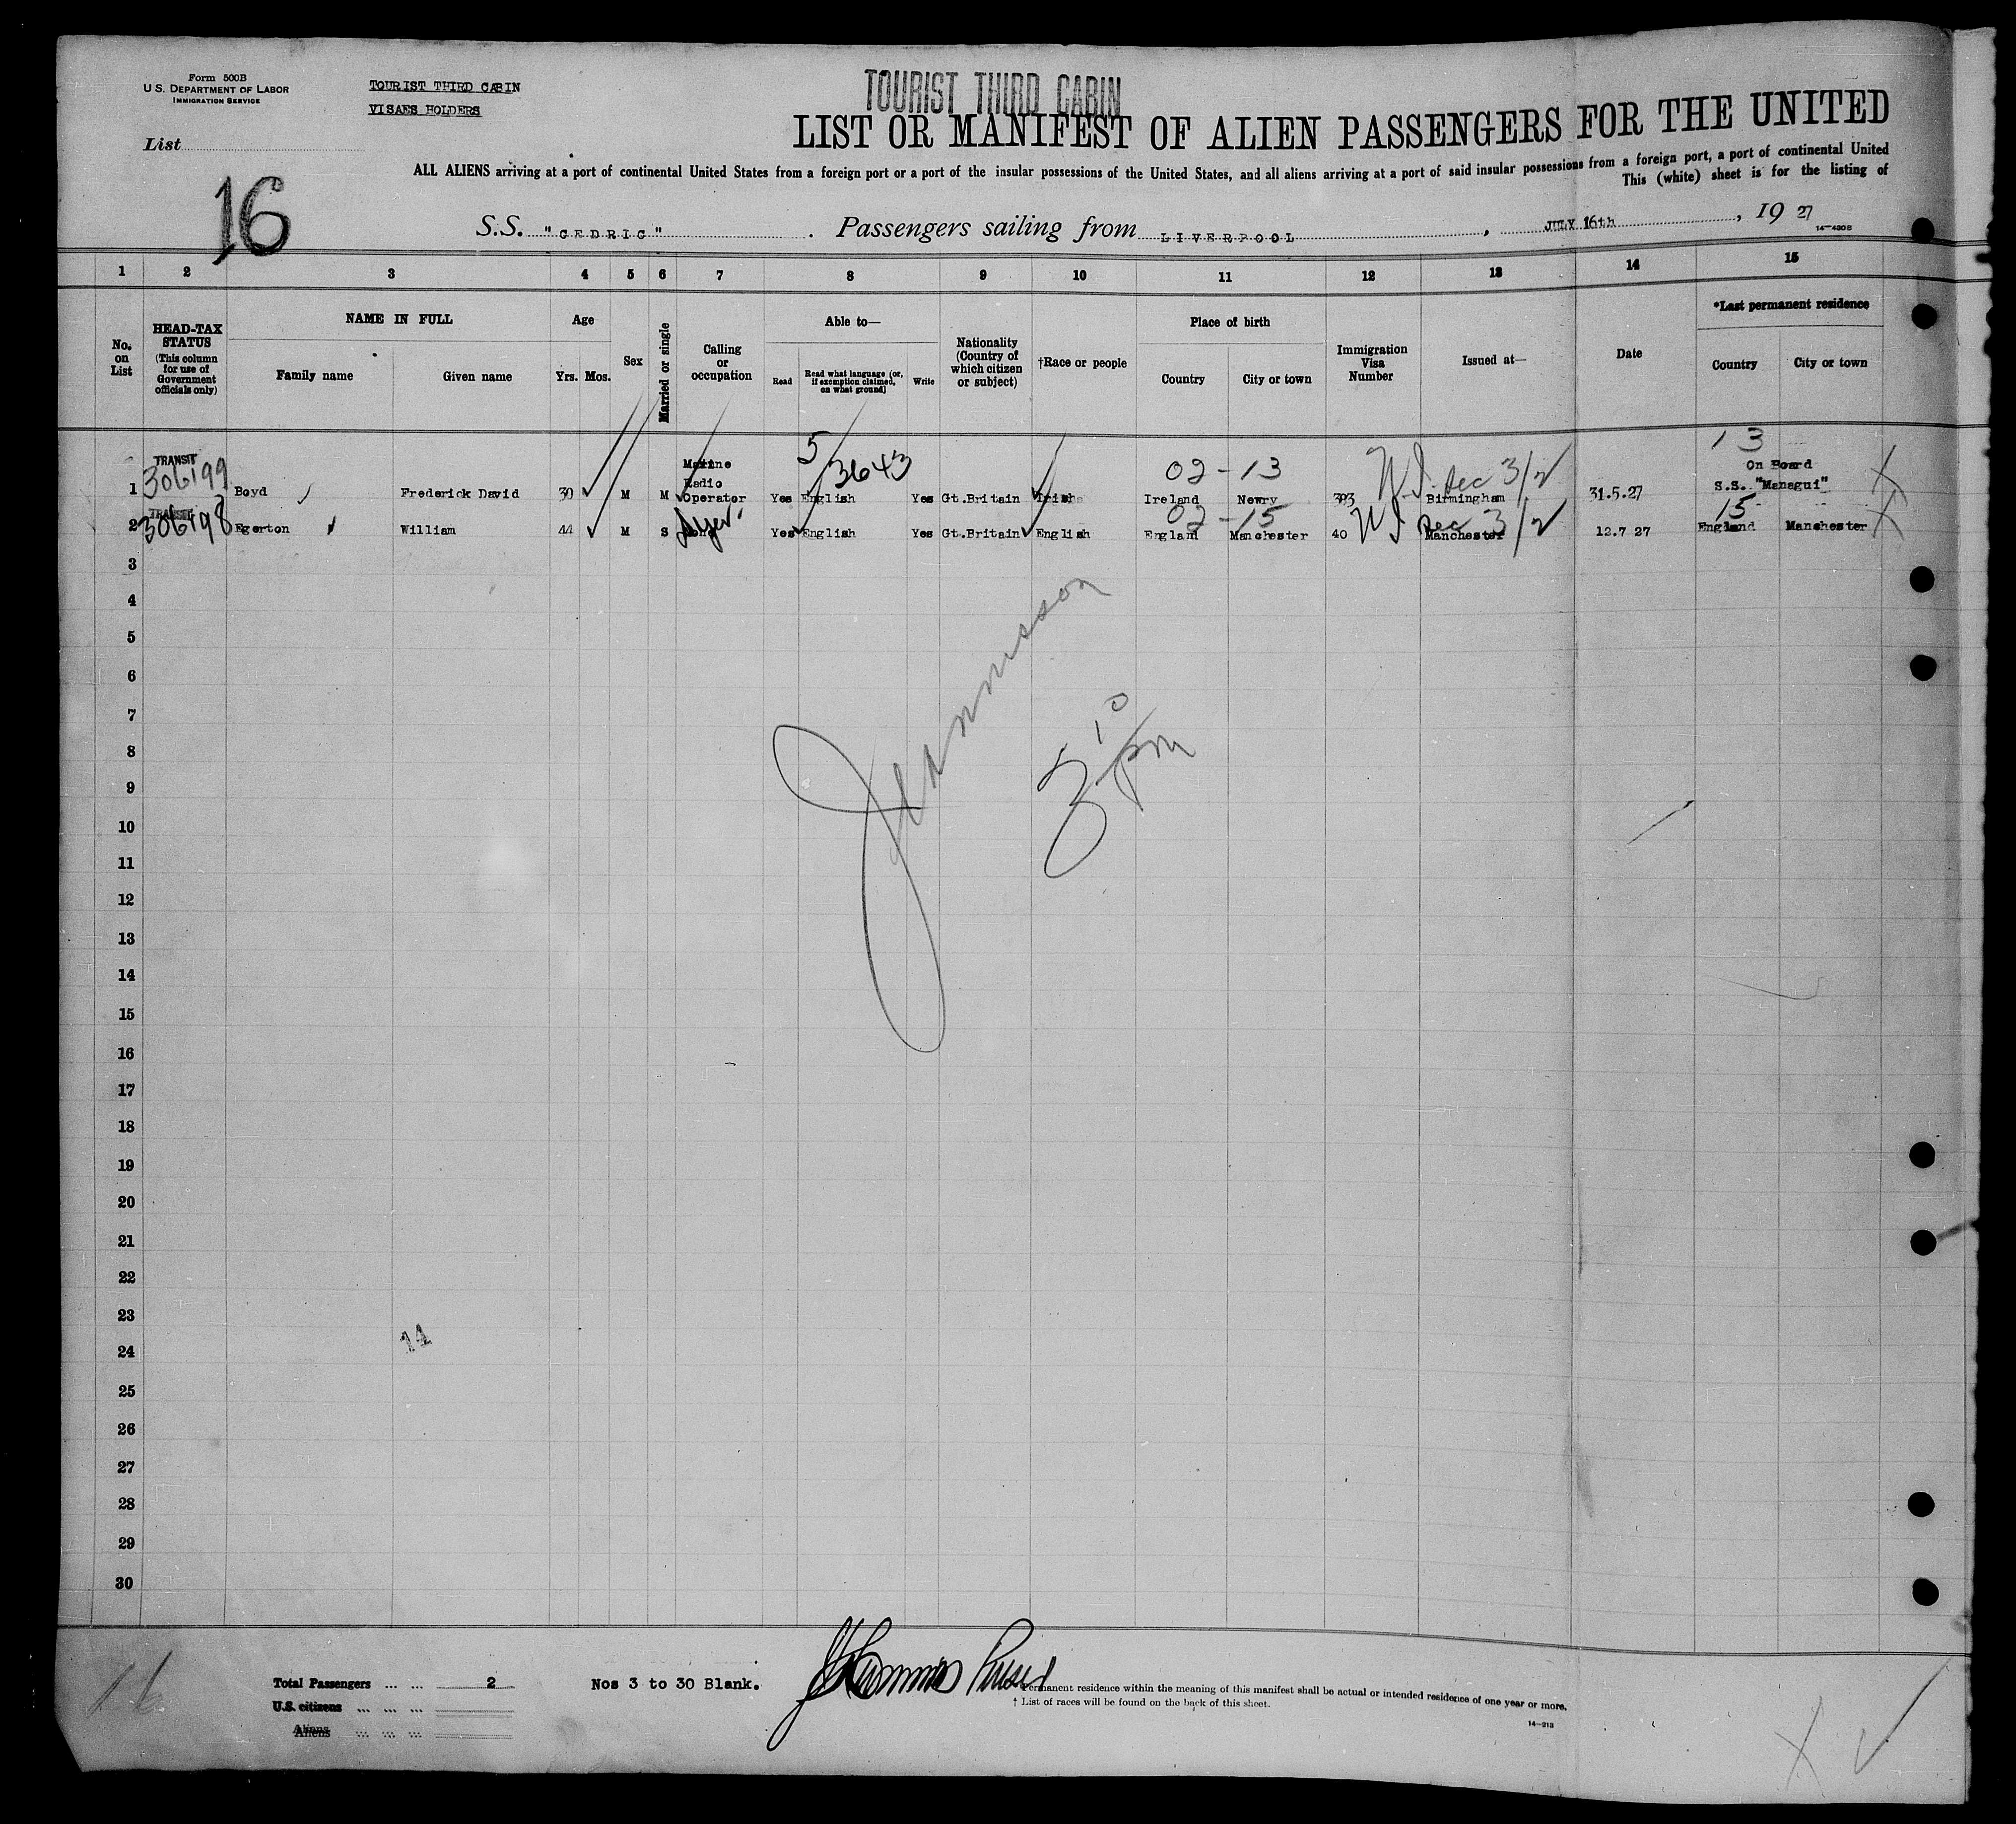 Form 500B
U.S. DEPARTMENT OF LABOR
IMMIGRATION SERVICE
TOURIST THIRD CABIN
VISAES HOLDERS
TOURIST THIRD CABIN
LIST OR MANIFEST OF ALIEN PASSENGERS FOR THE UNITED
List
ALL ALIENS arriving at a port of continental United States from a foreign port or a port of the insular possessions of the United States, and all aliens arriving at a port of said insular possessions from a foreign port, a port of continental United
This (white) sheet is for the listing of
16
S.S. "CEDRIC". Passengers sailing from LIVERPOOL, JULY 16th, 19 27
14-430 B
1 2 3 4 5 6 7 8 9 10 11 12 13 14 15
No. on List
HEAD-TAX STATUS (This column for use of Government officials only)
NAME IN FULL
Family name Given name
Age
Yrs. Mos.
Sex
Married or single
Calling or occupation
Able to—
Read Read what language (or, if exemption claimed, on what ground) Write
Nationality (Country of which citizen or subject)
†Race or people
Place of birth
Country City or town
Immigration Visa Number
Issued at—
Date
*Last permanent residence
Country City or town
5 3643 02-13 13
1 TRANSIT 306199 Boyd Frederick David 30 M M Marine Radio Operator Yes English Yes Gt.Britain Irish Ireland Newry 393 Birmingham 31.5.27 On Board S.S. "Managui"
02-15 15
2 TRANSIT 306198 Egerton William 44 M S Yes English Yes Gt.Britain English England Manchester 40 Manchester 12.7 27 England Manchester
3
4
5
6
7
8
9
10
11
12
13
14
15
16
17
18
19
20
21
22
23
24
25
26
27
28
29
30
3 10 pm
14
16
Total Passengers ... ... 2
U.S. citizens ... ... ...
Aliens ... ... ...
Nos 3 to 30 Blank.
Permanent residence within the meaning of this manifest shall be actual or intended residence of one year or more.
† List of races will be found on the back of this sheet.
14-213